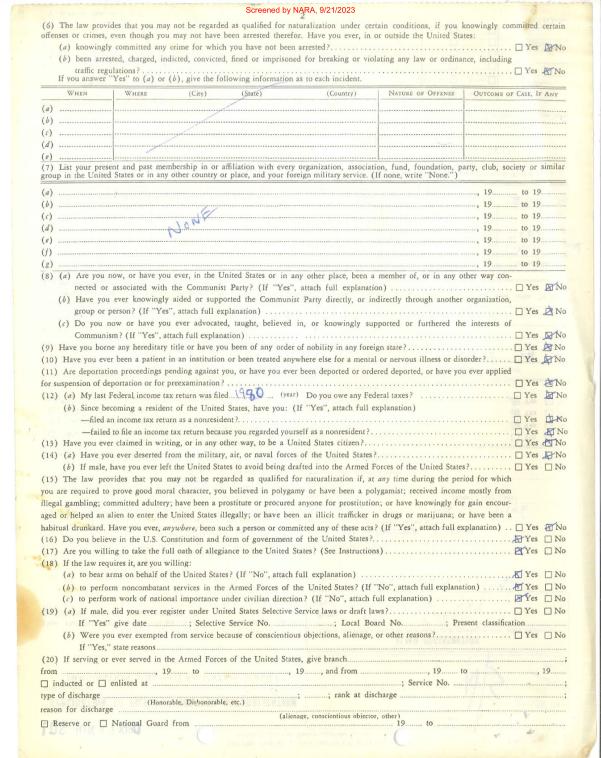 Screened by NARA, 9/21/2023
2
(6) The law provides that you may not be regarded as qualified for naturalization under certain conditions, if you knowingly committed certain
offenses or crimes, even though you may not have been arrested therefor. Have you ever, in or outside the United States:
(a) knowingly committed any crime for which you have not been arrested? ☐ Yes ☒ No
(b) been arrested, charged, indicted, convicted, fined or imprisoned for breaking or violating any law or ordinance, including
traffic regulations? ☐ Yes ☒ No
If you answer "Yes" to (a) or (b), give the following information as to each incident.
WHEN WHERE (City) (State) (Country) NATURE OF OFFENSE OUTCOME OF CASE, IF ANY
(a)
(b)
(c)
(d)
(e)
(7) List your present and past membership in or affiliation with every organization, association, fund, foundation, party, club, society or similar
group in the United States or in any other country or place, and your foreign military service. (If none, write "None.")
(a) , 19 to 19
(b) , 19 to 19
(c) , 19 to 19
NONE
(d) , 19 to 19
(e) , 19 to 19
(f) , 19 to 19
(g) , 19 to 19
(8) (a) Are you now, or have you ever, in the United States or in any other place, been a member of, or in any other way con-
nected or associated with the Communist Party? (If "Yes", attach full explanation) ☐ Yes ☒ No
(b) Have you ever knowingly aided or supported the Communist Party directly, or indirectly through another organization,
group or person? (If "Yes", attach full explanation) ☐ Yes ☒ No
(c) Do you now or have you ever advocated, taught, believed in, or knowingly supported or furthered the interests of
Communism? (If "Yes", attach full explanation) ☐ Yes ☒ No
(9) Have you borne any hereditary title or have you been of any order of nobility in any foreign state? ☐ Yes ☒ No
(10) Have you ever been a patient in an institution or been treated anywhere else for a mental or nervous illness or disorder? ☐ Yes ☒ No
(11) Are deportation proceedings pending against you, or have you ever been deported or ordered deported, or have you ever applied
for suspension of deportation or for preexamination? ☐ Yes ☒ No
(12) (a) My last Federal income tax return was filed 1980 (year) Do you owe any Federal taxes? ☐ Yes ☒ No
(b) Since becoming a resident of the United States, have you: (If "Yes", attach full explanation)
—filed an income tax return as a nonresident? ☐ Yes ☒ No
—failed to file an income tax return because you regarded yourself as a nonresident? ☐ Yes ☒ No
(13) Have you ever claimed in writing, or in any other way, to be a United States citizen? ☐ Yes ☒ No
(14) (a) Have you ever deserted from the military, air, or naval forces of the United States? ☐ Yes ☒ No
(b) If male, have you ever left the United States to avoid being drafted into the Armed Forces of the United States? ☐ Yes ☐ No
(15) The law provides that you may not be regarded as qualified for naturalization if, at any time during the period for which
you are required to prove good moral character, you believed in polygamy or have been a polygamist; received income mostly from
illegal gambling; committed adultery; have been a prostitute or procured anyone for prostitution; or have knowingly for gain encour-
aged or helped an alien to enter the United States illegally; or have been an illicit trafficker in drugs or marijuana; or have been a
habitual drunkard. Have you ever, anywhere, been such a person or committed any of these acts? (If "Yes", attach full explanation) ☐ Yes ☒ No
(16) Do you believe in the U.S. Constitution and form of government of the United States? ☒ Yes ☐ No
(17) Are you willing to take the full oath of allegiance to the United States? (See Instructions) ☒ Yes ☐ No
(18) If the law requires it, are you willing:
(a) to bear arms on behalf of the United States? (If "No", attach full explanation) ☒ Yes ☐ No
(b) to perform noncombatant services in the Armed Forces of the United States? (If "No", attach full explanation) ☒ Yes ☐ No
(c) to perform work of national importance under civilian direction? (If "No", attach full explanation) ☒ Yes ☐ No
(19) (a) If male, did you ever register under United States Selective Service laws or draft laws? ☐ Yes ☐ No
If "Yes" give date ; Selective Service No. ; Local Board No. ; Present classification
(b) Were you ever exempted from service because of conscientious objections, alienage, or other reasons? ☐ Yes ☐ No
If "Yes," state reasons
(20) If serving or ever served in the Armed Forces of the United States, give branch ;
from , 19 to , 19 , and from , 19 to , 19 ;
☐ inducted or ☐ enlisted at ; Service No. ;
type of discharge ; rank at discharge ;
(Honorable, Dishonorable, etc.)
reason for discharge
(alienage, conscientious objector, other)
☐ Reserve or ☐ National Guard from 19 to